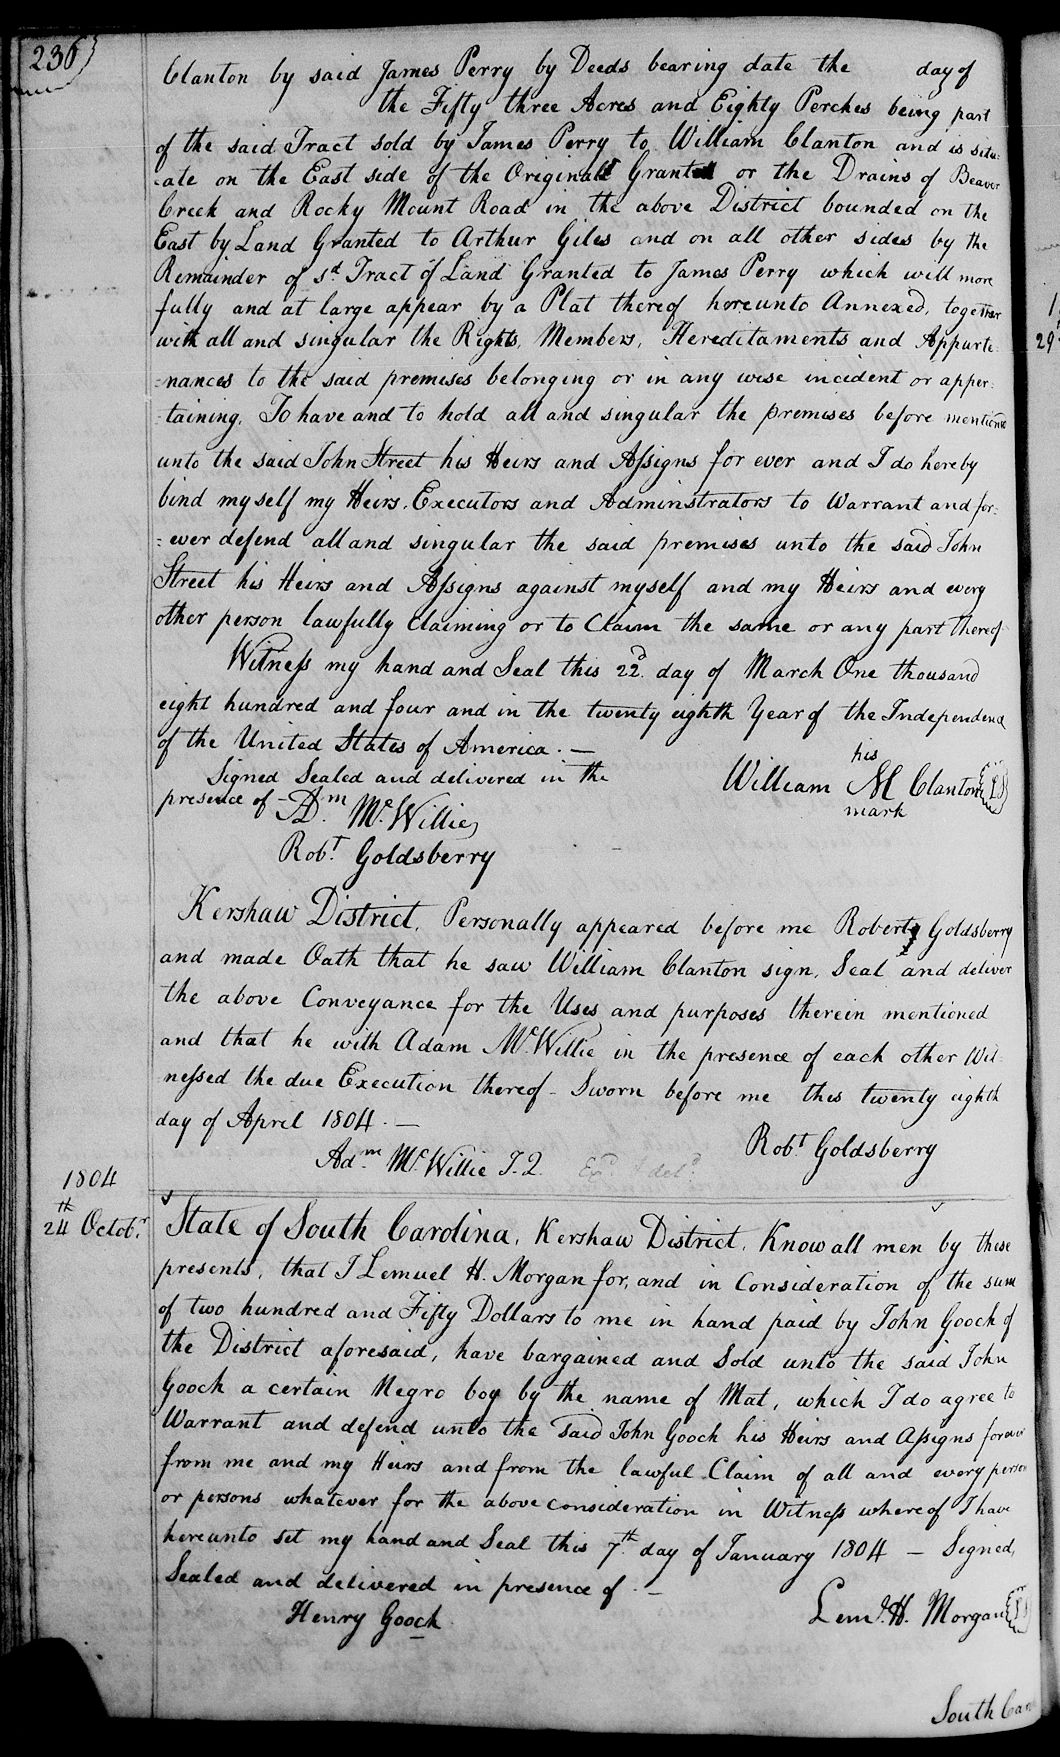 236
Clanton by said James Perry by Deeds bearing date the day of
the Fifty three Acres and Eighty Perches being part
of the said Tract sold by James Perry to William Clanton and is situ-
-ate on the East side of the Original Grant or the Drains of Beaver
Creek and Rocky Mount Road in the above District bounded on the
East by Land Granted to Arthur Giles and on all other sides by the
Remainder of sd Tract of Land Granted to James Perry which will more
fully and at large appear by a Plat thereof hereunto Annexed, together
with all and singular the Rights, Members, Hereditaments and Appurte-
=nances to the said premises belonging or in any wise incident or apper-
-taining. To have and to hold all and singular the premises before mentioned
unto the said John Street his Heirs and Assigns for ever and I do hereby
bind myself my Heirs. Executors and Administrators to Warrant and for=
=ever defend all and singular the said premises unto the said John
Street his Heirs and Assigns against myself and my Heirs and every
other person lawfully Claiming or to Claim the same or any part thereof
Witness my hand and Seal this 22d day of March One thousand
eight hundred and four and in the twenty eighth Year of the Independence
of the United States of America. —
his
Signed Sealed and delivered in the
William M Clanton LS
presence of - Adm. McWillie
mark
Robt Goldsberry
Kershaw District. Personally appeared before me Robert Goldsberry
and made Oath that he saw William Clanton sign, Seal and deliver
the above Conveyance for the Uses and purposes therein mentioned
and that he with Adam McWillie in the presence of each other Wit-
nessed the due Execution thereof - Sworn before me this twenty eighth
day of April 1804. —
Robt Goldsberry
Adm. McWillie J.Q.
1804
24th Octobr.
State of South Carolina, Kershaw District. Know all men by these
presents, that I Lemuel H. Morgan for, and in Consideration of the sum
of two hundred and Fifty Dollars to me in hand paid by John Gooch of
the District aforesaid, have bargained and Sold unto the said John
Gooch a certain Negro boy by the name of Mat, which I do agree to
Warrant and defend unto the said John Gooch his Heirs and Assigns forever
from me and my Heirs and from the lawful Claim of all and every person
or persons whatever for the above consideration in Witness whereof I have
hereunto set my hand and Seal this 7th day of January 1804 — Signed,
Sealed and delivered in presence of. —
Leml. H. Morgan LS
Henry Gooch
South Car
29